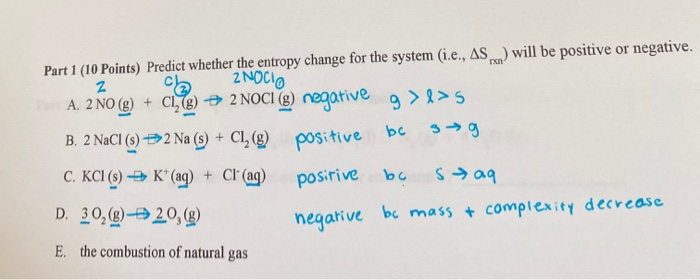 Part 1 (10 Points) Predict whether the entropy change for the system (i.e., ΔSrxn) will be positive or negative.
2 Cl₂ 2NOCl
A. 2 NO (g) + Cl₂ (g) → 2 NOCl (g) negative g > l > s
B. 2 NaCl (s) → 2 Na (s) + Cl₂ (g) positive bc s → g
C. KCl (s) → K⁺ (aq) + Cl⁻ (aq) positive bc s → aq
D. 3 O₂ (g) → 2 O₃ (g) negative bc mass + complexity decrease
E. the combustion of natural gas